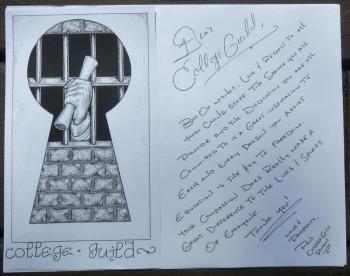 college · guild
Dear
College Guild,
Love & Respect to all
your Caring Staff. The Service you all
Provide and the Dedication you are all
Committed to is a Great Inspiration to
Each and Every Person you Assist.
Education is the Key to Freedom.
Your Compassion Does Really make a
Great Difference to The Lives & Spirits
Of Everyone.
Thank You!
Love &
College Guild